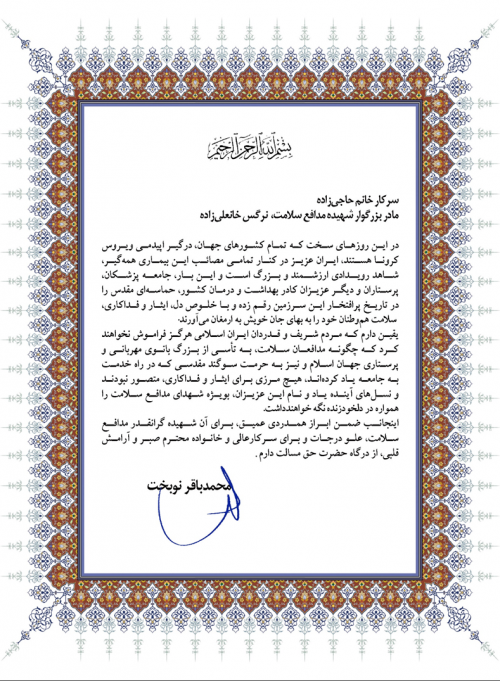 بسم الله الرحمن الرحیم
سرکار خانم حاجی‌زاده
مادر بزرگوار شهیده مدافع سلامت، نرگس خانعلی‌زاده
در این روزهای سخت که تمام کشورهای جهان، درگیر اپیدمی ویروس
کرونا هستند، ایران عزیز در کنار تمامی مصائب این بیماری همه‌گیر،
شاهد رویدادی ارزشمند و بزرگ است و این بار، جامعه پزشکان،
پرستاران و دیگر عزیزان کادر بهداشت و درمان کشور، حماسه‌ای مقدس را
در تاریخ پرافتخار این سرزمین رقم زده و با خلوص دل، ایثار و فداکاری،
سلامت هم‌وطنان خود را به بهای جان خویش به ارمغان می‌آورند.
یقین دارم که مردم شریف و قدردان ایران اسلامی هرگز فراموش نخواهند
کرد که چگونه مدافعان سلامت، به تأسی از بزرگ بانوی مهربانی و
پرستاری جهان اسلام و نیز به حرمت سوگند مقدسی که در راه خدمت
به جامعه یاد کرده‌اند، هیچ مرزی برای ایثار و فداکاری، متصور نبودند
و نسل‌های آینده یاد و نام این عزیزان، بویژه شهدای مدافع سلامت را
همواره در دلخود‌زنده نگه خواهندداشت.
اینجانب ضمن ابراز همدردی عمیق، برای آن شهیده گرانقدر مدافع
سلامت، علو درجات و برای سرکارعالی و خانواده محترم صبر و آرامش
قلبی، از درگاه حضرت حق مسالت دارم .
محمدباقر نوبخت